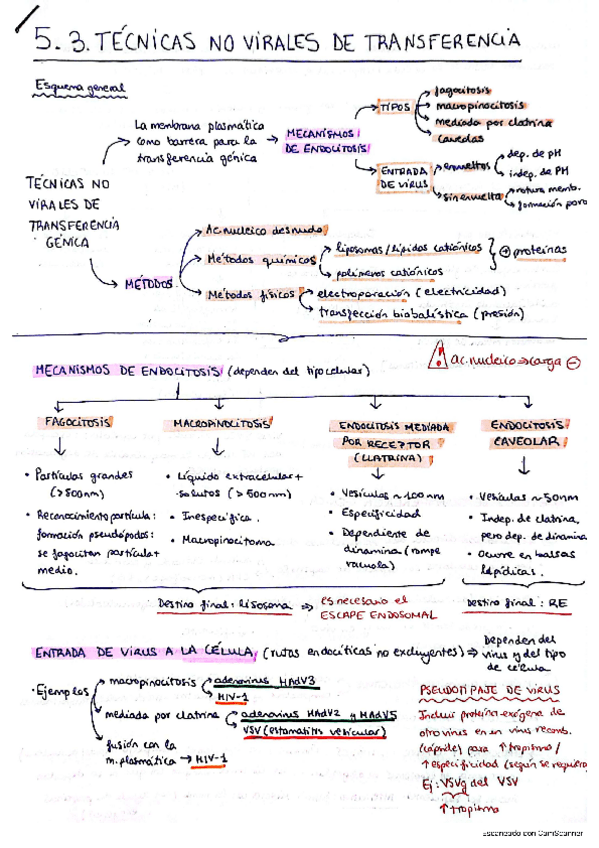 5.3. TÉCNICAS NO VIRALES DE TRANSFERENCIA
Esquema general
TÉCNICAS NO
VIRALES DE
TRANSFERENCIA
GÉNICA
La membrana plasmática
como barrera para la
transferencia génica
MECANISMOS
DE ENDOCITOSIS
TIPOS
fagocitosis
macropinocitosis
mediada por clatrina
caveolas
ENTRADA
DE VIRUS
envueltos
dep. de pH
indep. de PH
sin envuelta
rotura memb.
formación poro
MÉTODOS
Ac. nucleico desnudo
Métodos químicos
liposomas/lípidos catiónicos
polímeros catiónicos
⊕ proteínas
Métodos físicos
electroporación (electricidad)
transfección biobalística (presión)
⚠ ac. nucleico → carga ⊖
MECANISMOS DE ENDOCITOSIS (dependen del tipo celular)
FAGOCITOSIS
• Partículas grandes
(>500nm)
• Reconocimiento partícula:
formación pseudópodos:
se fagocitan partícula +
medio.
MACROPINOCITOSIS
• Líquido extracelular +
solutos (>500nm)
• Inespecífica.
• Macropinocitoma
ENDOCITOSIS MEDIADA
POR RECEPTOR
(CLATRINA)
• Vesículas ~100nm
• Especificidad
• Dependiente de
dinamina (rompe
vacuola)
ENDOCITOSIS
CAVEOLAR
• Vesículas ~50nm
• Indep. de clatrina,
pero dep. de dinamina
• Ocurre en balsas
lipídicas.
Destino final: lisosoma ⇒ es necesario el
ESCAPE ENDOSOMAL
Destino final: RE
ENTRADA DE VIRUS A LA CÉLULA (rutas endocíticas no excluyentes) ⇒ Dependen del
virus y del tipo
de célula
• Ejemplos
macropinocitosis
adenovirus HAdV3
HIV-1
mediada por clatrina
adenovirus HAdV2 y HAdV5
VSV (estomatitis vesicular)
fusión con la
m. plasmática → HIV-1
PSEUDOTIPAJE DE VIRUS
Incluir proteína exógena de
otro virus en un virus recomb.
(cápside) para ↑ tropismo /
↑ especificidad (según se requiera)
Ej: VSVg del VSV
↑ tropismo
Escaneado con CamScanner